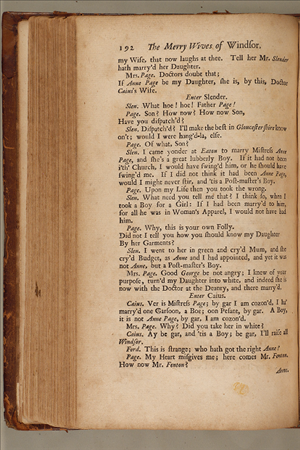 192 The Merry Wives of Windsor.
my Wife, that now laughs at thee. Tell her Mr. Slender
hath marry'd her Daughter.
Mrs. Page. Doctors doubt that;
If Anne Page be my Daughter, she is, by this, Doctor
Caius's Wife.
Enter Slender.
Slen. What hoe! hoe! Father Page!
Page. Son? How now? How now Son,
Have you dispatch'd?
Slen. Dispatch'd? I'll make the best in Glocestershire know
on't; would I were hang'd-la, else.
Page. Of what, Son?
Slen. I came yonder at Eaton to marry Mistress Anne
Page, and she's a great lubberly Boy. If it had not been
i'th' Church, I would have swing'd him, or he should have
swing'd me. If I did not think it had been Anne Page,
would I might never stir, and 'tis a Post-master's Boy.
Page. Upon my Life then you took the wrong.
Slen. What need you tell me that? I think so, when I
took a Boy for a Girl: If I had been marry'd to him,
for all he was in Woman's Apparel, I would not have had
him.
Page. Why, this is your own Folly.
Did not I tell you how you should know my Daughter
By her Garments?
Slen. I went to her in green and cry'd Mum, and she
cry'd Budget, as Anne and I had appointed, and yet it was
not Anne, but a Post-master's Boy.
Mrs. Page. Good George be not angry; I knew of your
purpose, turn'd my Daughter into white, and indeed she is
now with the Doctor at the Deanry, and there marry'd.
Enter Caius.
Caius. Ver is Mistress Page; by gar I am cozon'd. I ha'
marry'd one Garsoon, a Boe; oon Pesant, by gar. A Boy,
it is not Anne Page, by gar, I am cozon'd.
Mrs. Page. Why? Did you take her in white?
Caius. Ay be gar, and 'tis a Boy; be gar, I'll raise all
Windsor.
Ford. This is strange; who hath got the right Anne?
Page. My Heart misgives me; here comes Mr. Fenton.
How now Mr. Fenton?